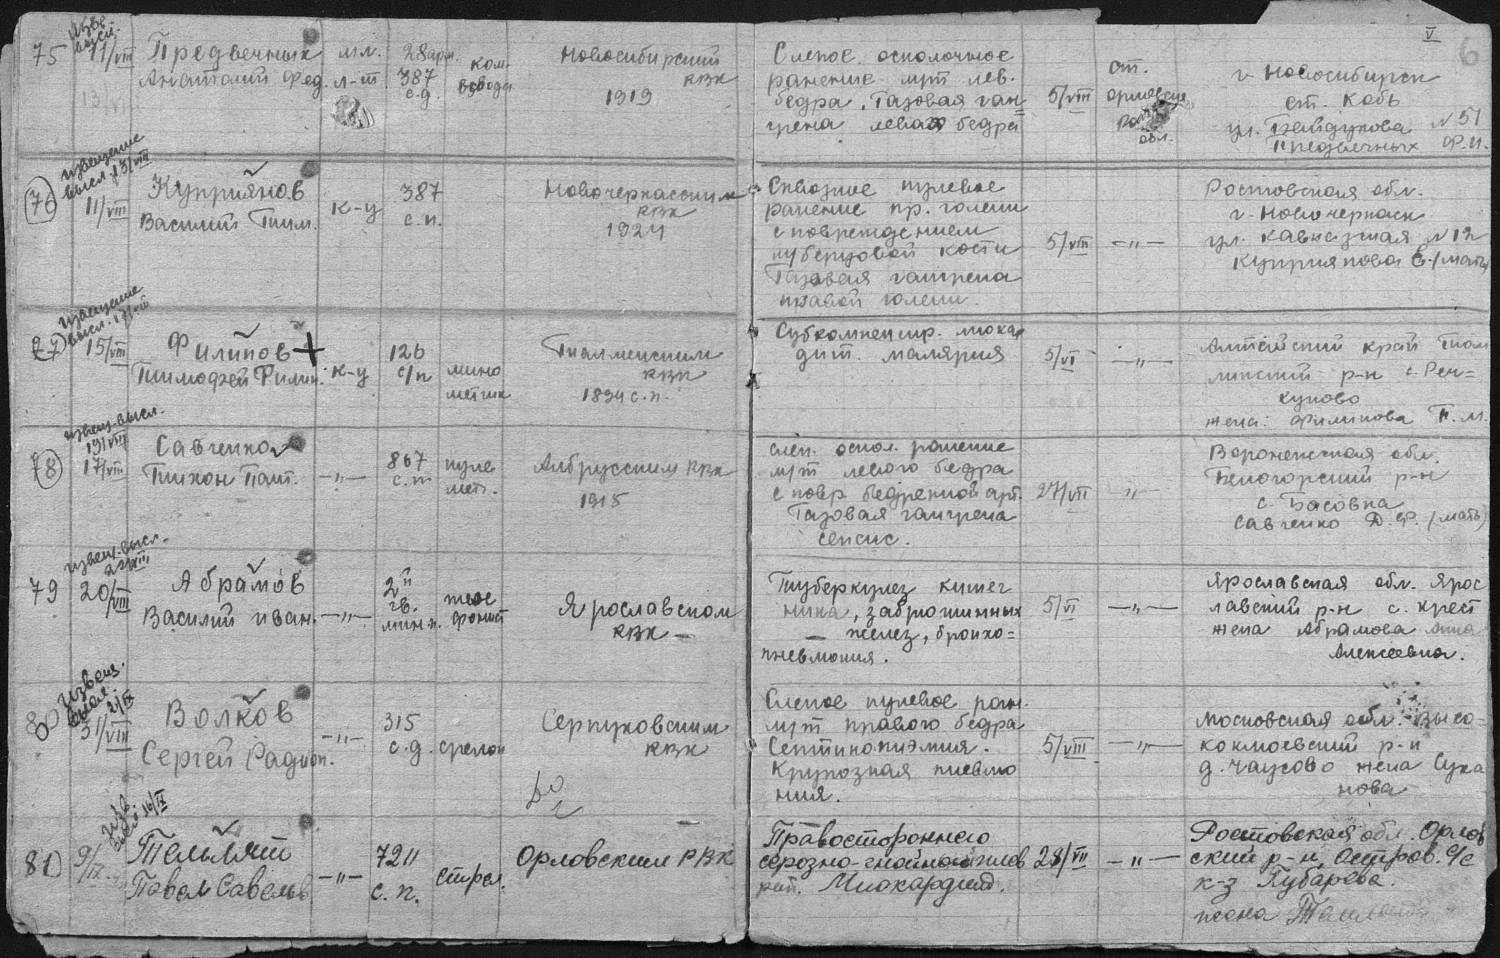 V
6
75
изве.
высл.
11/VIII
Предвечных
Анатолий Фед.
мл.
л-т
28 арм.
387
с.д.
ком.
взвода
Новосибирский
РВК
1919
Слепое осколочное
ранение мт лев.
бедра. Газовая ган=
грена левого бедра
5/VIII
ст.
обл.
г. Новосибирск
ст. Кобь
ул. Байдукова №51
Предвечных Ф.И.
76
извещение
высл. 13/VIII
11/VIII
Куприянов
Василий Тим.
к-ц
387
с.п.
Новочеркасским
РВК
1924
Сквозное пулевое
ранение пр. голени
с повреждением
луберцовой кости
Газовая гангрена
правой голени.
5/VIII
—"—
Ростовская обл.
г. Новочеркаск
ул. Кавказная №12
Куприянова Е. (мать)
77
извещение
высл. 17/VIII
15/VIII
Филипов +
Тимофей Филип.
к-ц
126
с/п
мино
метчик
Тиалменским
РВК
1894 с.п.
Субкомпенсир. миокар
дит. малярия
5/VI
—"—
Алтайский край Тиал
минский р-н с. Реч=
куново
жена: Филипова Т.М.
78
извещ. высл.
19/VIII
17/VIII
Савченко
Тихон Пант.
—"—
867
с.п.
пуле
мет.
Албрусским РВК
1915
слеп. оскол. ранение
мт левого бедра
с повр. бедренной арт.
Газовая гангрена
сепсис.
27/VII
—"—
Воронежская обл.
Белогорский р-н
с. Басовка
Савченко Д.Ф. (мать)
79
извещ. высл.
22/VIII
20/VIII
Абрамов
Василий Иван.
—"—
2й
гв.
мин.п.
теле
фонист
Ярославском
РВК —
Туберкулез кишеч
ника, забрюшинных
— желез, бронхо=
пневмония.
5/VI
—"—
Ярославская обл. Ярос
лавский р-н с. Крест
жена Абрамова Анна
Алексеевна.
80
извещ.
высл. 2/IX
31/VIII
Волков
Сергей Радион.
—"—
315
с.д.
стрелок
Серпуховским
РВК
Слепое пулевое ран.
мт правого бедра
Септикопиэмия.
Крупозная пневмо
ния.
5/VIII
—"—
Московская обл. Высо-
кониоевский р-н
д. Чаусово жена Суха
нова
81
изв.
высл. 16/IX
9/IX
Тельлят
Павел Савельев
—"—
7211
с.п.
стрел.
Орловским РВК
Правостороннего
серозно-гнойного плев
рит. Миокардит.
28/VII
—"—
Ростовская обл. Орлов
ский р-н, Остров. с/с
к-з Кубарева.
жена